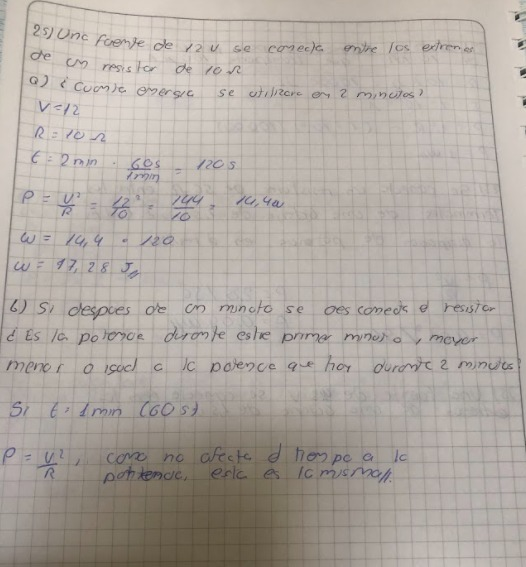 25) Una fuente de 12 V se conecta entre los extremos
de un resistor de 10 Ω
a) ¿Cuanta energia se utilizara en 2 minutos?
V = 12
R = 10 Ω
t = 2 min · 60s/1min = 120 s
P = V²/R = 12²/10 = 144/10 = 14,4w
w = 14,4 · 120
w = 17,28 J//
b) Si despues de un minuto se desconecta el resistor
¿ Es la potencia durante este primer minuto, mayor
menor o igual a la potencia que hay durante 2 minutos?
Si t = 1 min (60 s)
P = V²/R, como no afecta el tiempo a la
potencia, esta es la misma//.